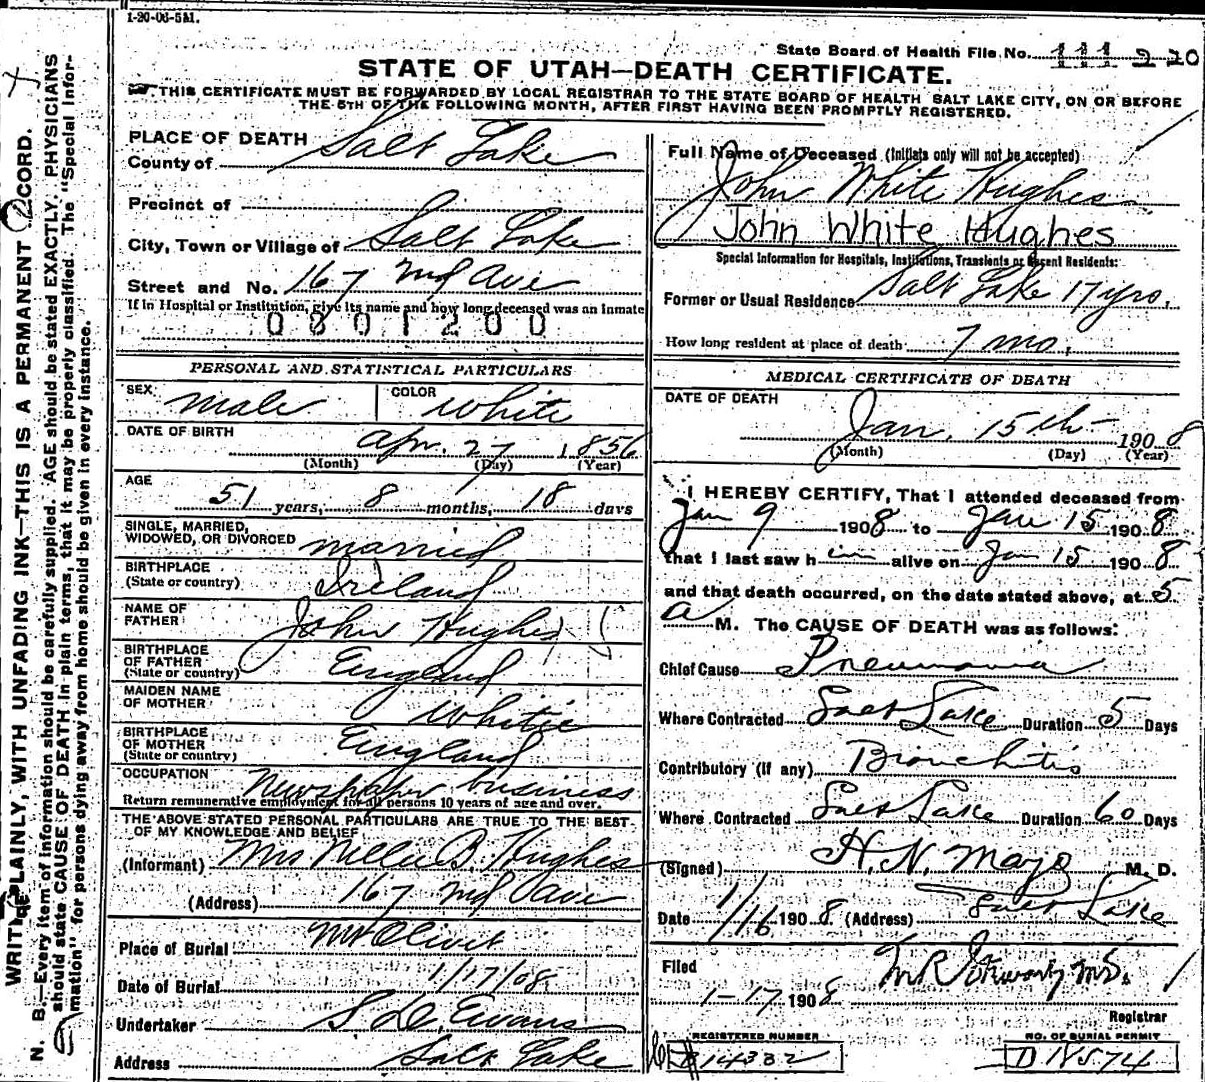 1-20-08-5M.
State Board of Health File No. 111 220
STATE OF UTAH—DEATH CERTIFICATE.
THIS CERTIFICATE MUST BE FORWARDED BY LOCAL REGISTRAR TO THE STATE BOARD OF HEALTH SALT LAKE CITY, ON OR BEFORE
THE 5TH OF THE FOLLOWING MONTH, AFTER FIRST HAVING BEEN PROMPTLY REGISTERED.
PLACE OF DEATH
County of Salt Lake
Precinct of
City, Town or Village of Salt Lake
Street and No. 167 Ave
If in Hospital or Institution, give its name and how long deceased was an Inmate
0801200
PERSONAL AND STATISTICAL PARTICULARS
SEX male COLOR White
DATE OF BIRTH Apr. 27 1856
(Month) (Day) (Year)
AGE
51 years, 8 months, 18 days
SINGLE, MARRIED,
WIDOWED, OR DIVORCED married
BIRTHPLACE
(State or country) Ireland
NAME OF
FATHER John Hughes
BIRTHPLACE
OF FATHER
(State or country) England
MAIDEN NAME
OF MOTHER White
BIRTHPLACE
OF MOTHER
(State or country) England
OCCUPATION Newspaper business
Return remunerative employment for all persons 10 years of age and over.
THE ABOVE STATED PERSONAL PARTICULARS ARE TRUE TO THE BEST
OF MY KNOWLEDGE AND BELIEF
(Informant) Mrs Nellie B. Hughes
(Address) 167 Ave
Place of Burial Mt Olivet
Date of Burial 1/17/08
Undertaker S. D. Evans
Address Salt Lake
Full Name of Deceased (Initials only will not be accepted)
John White Hughes
John White Hughes
Special Information for Hospitals, Institutions, Transients or Recent Residents:
Former or Usual Residence Salt Lake 17 yrs.
How long resident at place of death 7 mo.
MEDICAL CERTIFICATE OF DEATH
DATE OF DEATH
Jan. 15th 1908
(Month) (Day) (Year)
I HEREBY CERTIFY, That I attended deceased from
Jan 9 1908 to Jan 15 1908
that I last saw him alive on Jan 15 1908
and that death occurred, on the date stated above, at 5
a M. The CAUSE OF DEATH was as follows:
Chief Cause Pneumonia
Where Contracted Salt Lake Duration 5 Days
Contributory (if any) Bronchitis
Where Contracted Salt Lake Duration 60 Days
(Signed) H. N. Mayo M. D.
Date 1/16 1908 (Address) Salt Lake
Filed
1-17 1908 M.D.
Registrar
REGISTERED NUMBER
B14332
NO. OF BURIAL PERMIT
D 18574
WRITE PLAINLY, WITH UNFADING INK—THIS IS A PERMANENT RECORD.
N. B.—Every item of information should be carefully supplied. AGE should be stated EXACTLY. PHYSICIANS
should state CAUSE OF DEATH in plain terms, that it may be properly classified. The "Special Infor-
mation" for persons dying away from home should be given in every instance.